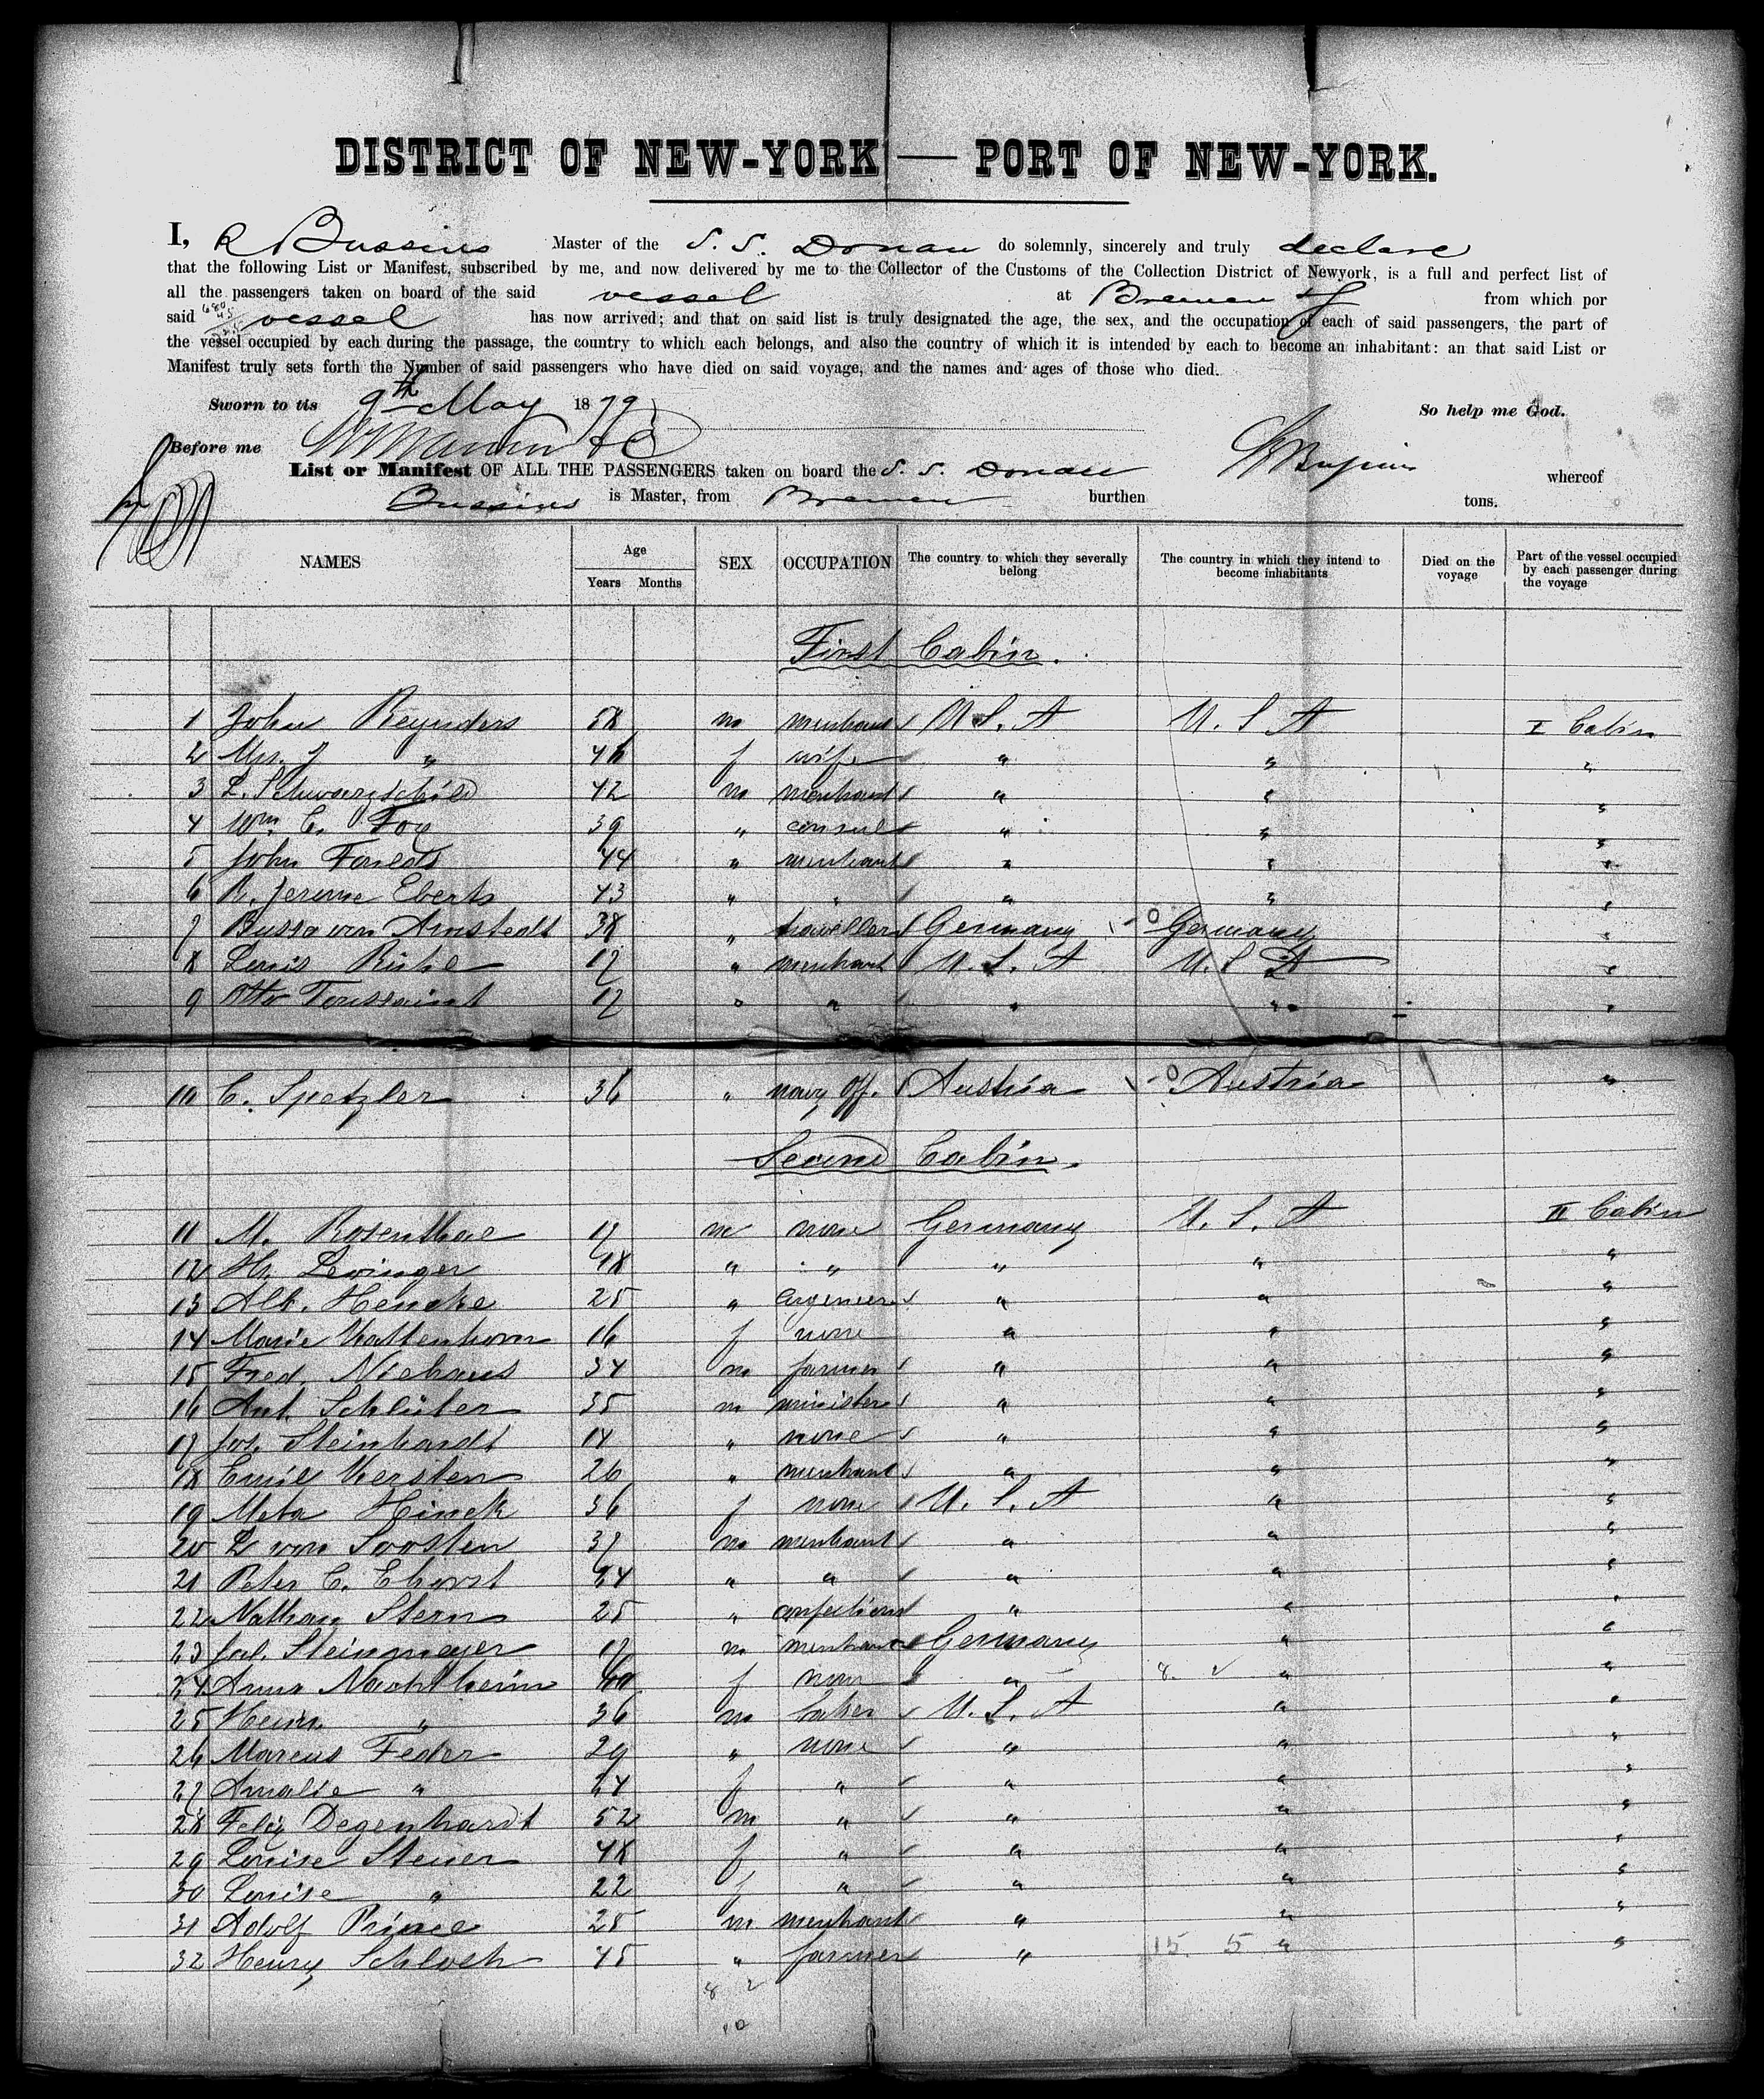 DISTRICT OF NEW-YORK — PORT OF NEW-YORK.
I, R Bussius Master of the S. S. Donau do solemnly, sincerely and truly declare
that the following List or Manifest, subscribed by me, and now delivered by me to the Collector of the Customs of the Collection District of Newyork, is a full and perfect list of
all the passengers taken on board of the said vessel at Bremen from which por
said vessel has now arrived; and that on said list is truly designated the age, the sex, and the occupation of each of said passengers, the part of
the vessel occupied by each during the passage, the country to which each belongs, and also the country of which it is intended by each to become an inhabitant: an that said List or
Manifest truly sets forth the Number of said passengers who have died on said voyage, and the names and ages of those who died.
Sworn to tis 9th May 1879 So help me God.
Before me
List or Manifest OF ALL THE PASSENGERS taken on board the S. S. Donau whereof
Bussius is Master, from Bremen burthen tons.
NAMES Age SEX OCCUPATION The country to which they severally belong The country in which they intend to become inhabitants Died on the voyage Part of the vessel occupied by each passenger during the voyage
Years Months
First Cabin.
1 John Reynders 58 m merchant U. S. A U. S A I Cabin
2 Mrs. J " 46 f wife " " "
3 L. Schwarzschild 42 m merchant " " "
4 Wm C. Fox 39 " consul " " "
5 John 44 " merchant " " "
6 R. Jerome Eberts 43 " " " " "
7 Busso von Arnstedt 38 " traveller Germany Germany "
8 Louis 17 " merchant U. S. A U. S A "
9 Otto Toussaint 17 " " " " "
10 C. Spetzler 36 " navy Off. Austria Austria "
Second Cabin.
11 M. Rosenthal 17 m none Germany U. S. A II Cabin
12 H. Levinger 48 " " " " "
13 Alb. Hencke 25 " " " "
14 Marie Kattenhorn 16 f none " " "
15 Fred. Niehaus 34 m farmer " " "
16 Ant. Schlüter 35 m minister " " "
17 Jos. Steinhardt 14 " none " " "
18 Emil Kersten 26 " merchant " " "
19 Meta Hinck 36 f none U. S. A " "
20 L von Soosten 37 m merchant " " "
21 Peter C. Ehorst 24 " " " " "
22 Nathan Stern 25 " " " "
23 Steinmeyer 17 m merchant Germany " "
24 Anna Nachtheim f none " 8. 2 " "
25 Heinr. " 36 m baker U. S. A " "
26 Marcus Feder 29 " none " " "
27 Amalie " 24 f " " " "
28 Felix Degenhardt 52 m " " " "
29 Louise Steuer 48 f " " " "
30 Louise " 22 f " " " "
31 Adolf Prince 25 m merchant " " "
32 Henry Schloth 45 " farmer " 15 5 " "
8 2
10